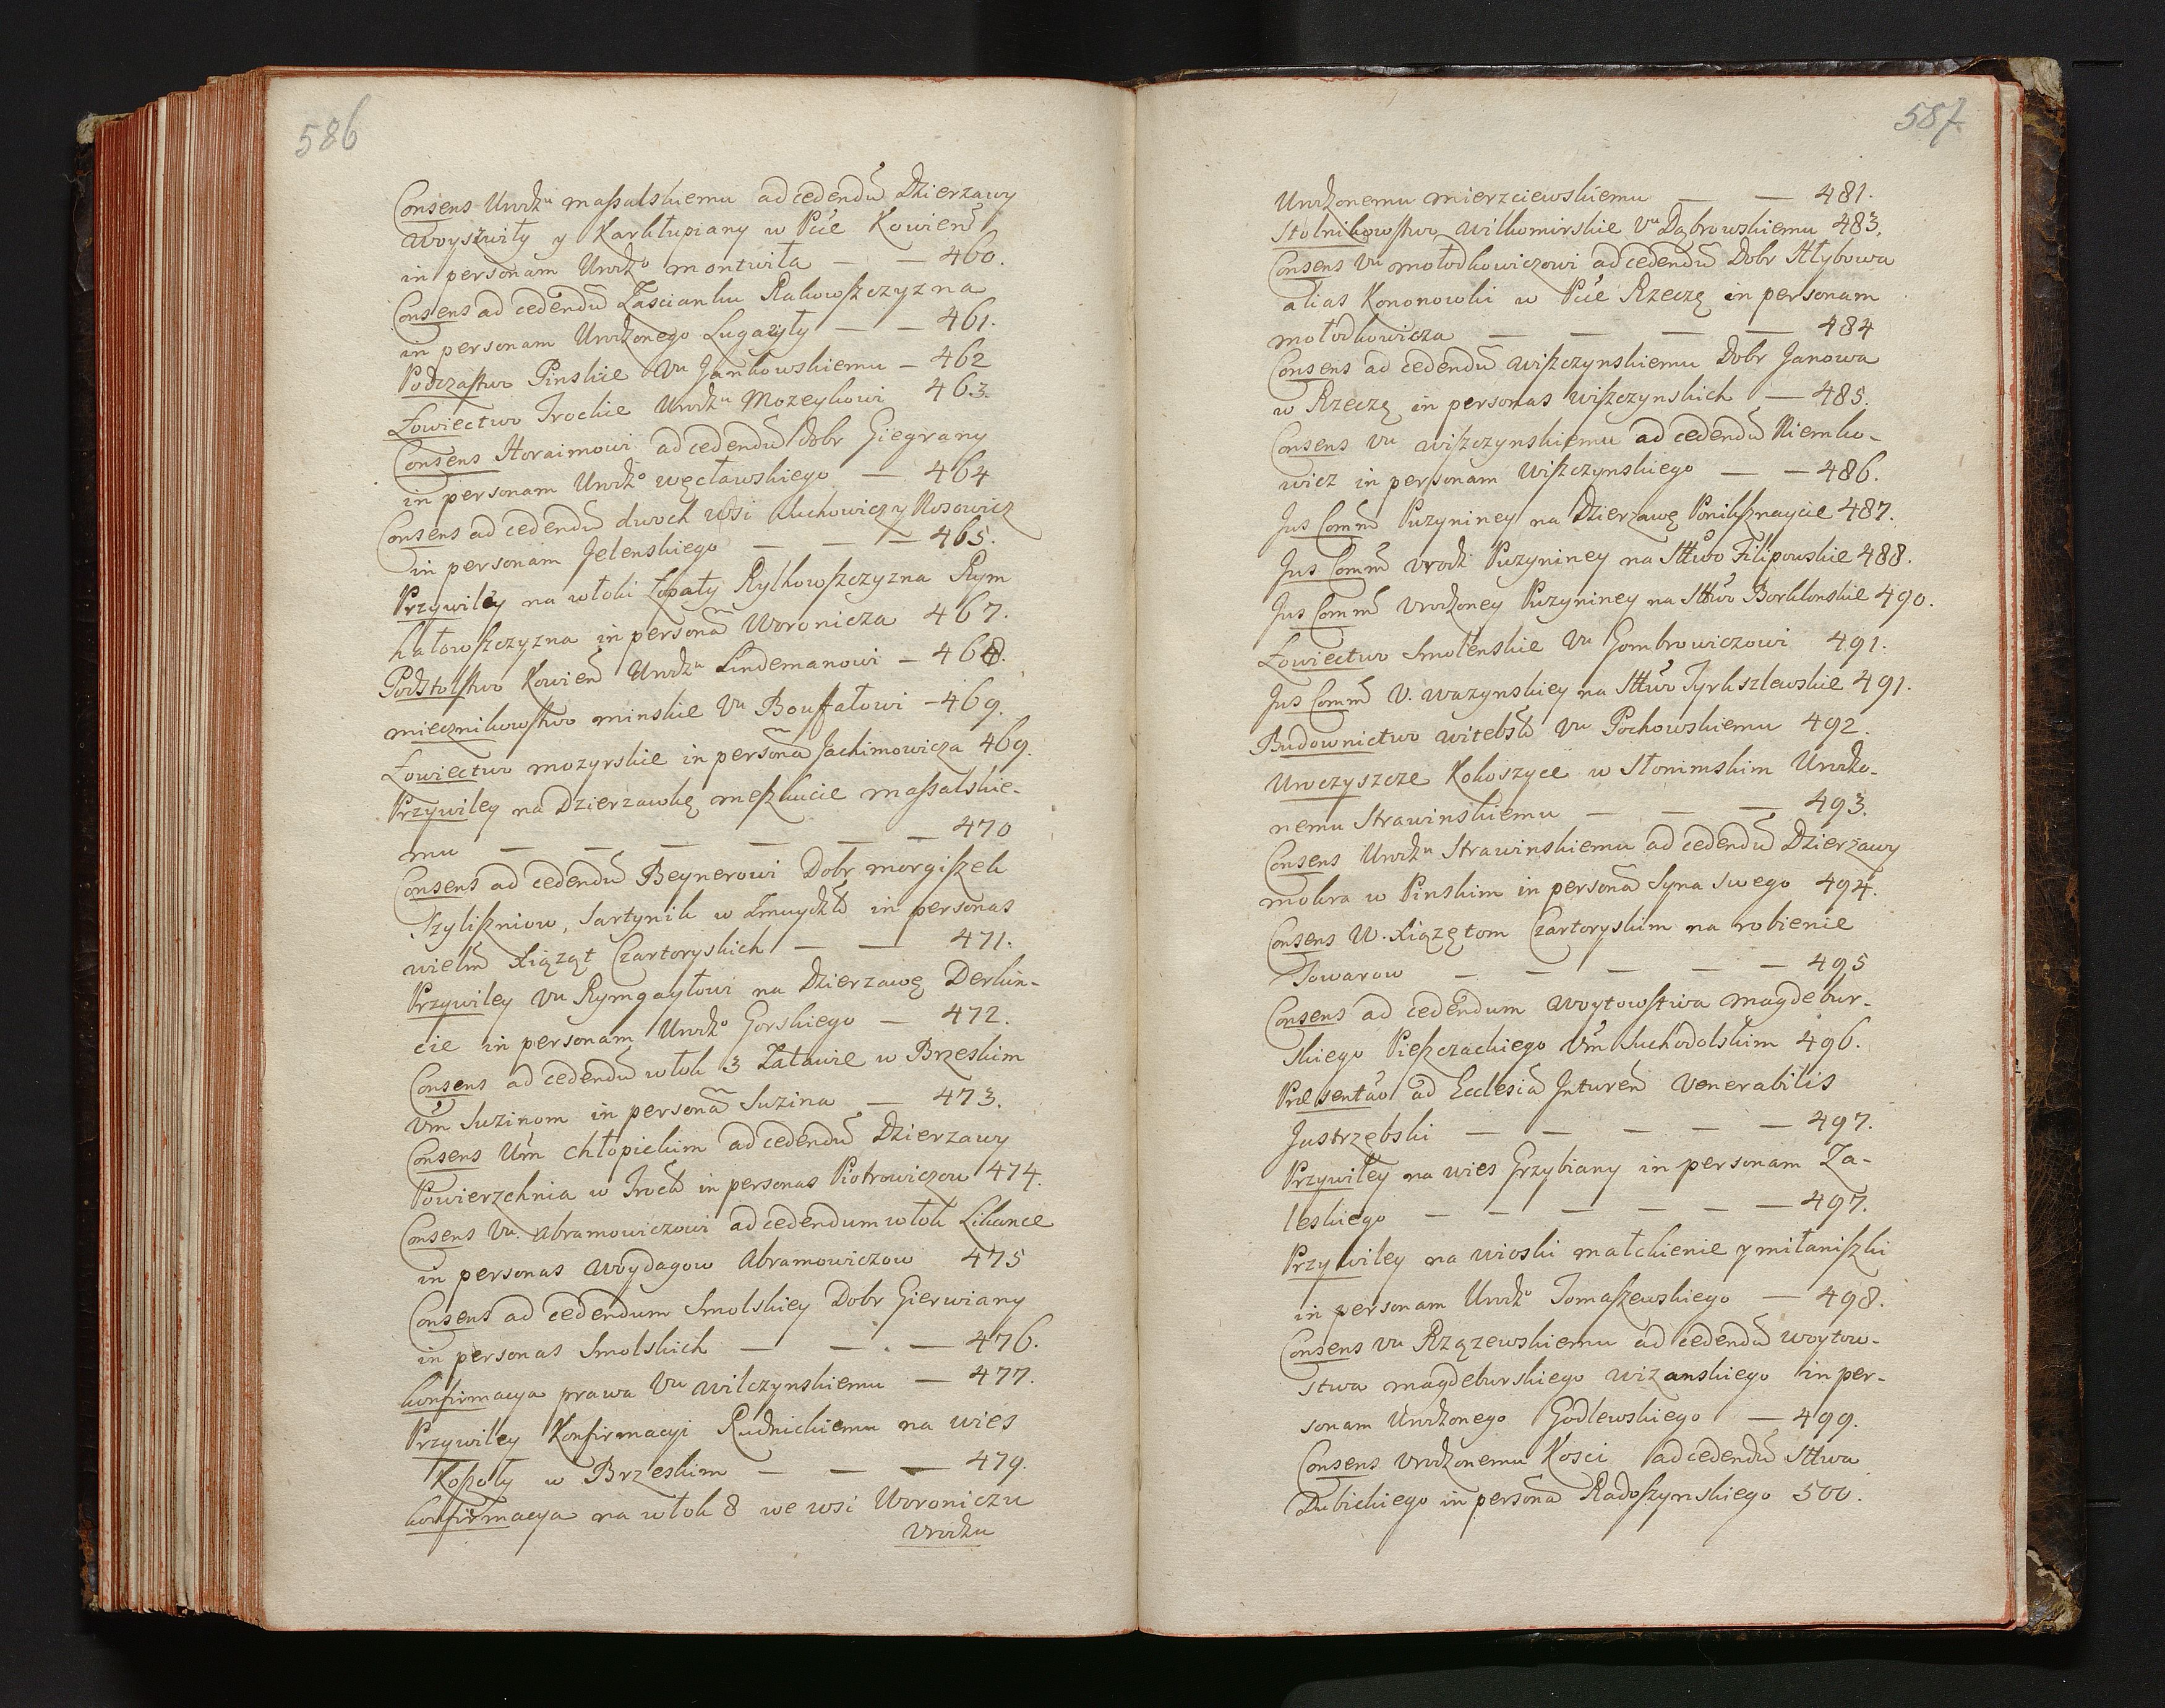 586
Consens Urodzu massalskiemu ad cedendū Dzierzawy
Woyszwiły y Karkłupiany w Pcie Kowień
in personam Urodzo montwiła — — 460.
Consens ad cedendū Zascianku Rakowszczyzna
in personam Urodzonego Lugaiły — — 461.
Podczastwo Pinskie Vu Jankowskiemu — 462
Łowiectwo Trockie Urodzu Mozeykowi 463.
Consens Horaimowi ad cedendū dobr Giegrany
in personam Urodzo węcławskiego — 464
Consens ad cedendū dwoch wsi Luchowicz y Nosowicz
in personam Jelenskiego — — — 465.
Przywiley na włoki Łopaty Rylkowszczyzna Rym
kałowszczyzna in personā Woronicza 467.
Podstolstwo Kowień Urodzu Lindemanowi — 468.
miecznikowstwo minskie Vu Bouffałowi — 469.
Łowiectwo mozyrskie in personā Jachimowicza 469.
Przywiley na Dzierzawkę meszkucie massalskie-
mu — — — — — — 470
Consens ad cedendū Beynerowi Dobr morgiszek
Szyliszniow, Sartynik w Zmuydzk in personas
wielm Xiąząt Czartoryskich — — 471.
Przywiley Vu Rymgayłowi na Dzierzawę Derkin-
cie in personam Urodzo Gorskiego — 472.
Consens ad cedendū włok 3 Załawie w Brzeskim
Vm Suzinom in personā Suzina — 473.
Consens Um chłopickim ad cedendū Dzierzawy
Powierzchnia w Trock in personas Piotrowiczow 474.
Consens Vu. Abramowiczowi ad cedendum włok Likance
in personas Woydagow Abramowiczow 475
Consens ad cedendum Smolskiey Dobr Gierwiany
in personas Smolskich — — — 476.
konfirmacya prawa Vu wilczynskiemu — 477.
Przywiley Konfirmacyi Rudnickiemu na wies
Koszoły w Brzeskim — — — 479.
konfirmacya na włok 8 we wsi Woroniczu
Vrodzu
587
Urodzonemu mierzciewskiemu — — 481.
Stolnikowstwo wiłkomirskie Vu Dąbrowskiemu 483.
Consens Vu mołodkowiczowi ad cedendū Dobr Hłybowa
alias Kononowki w Pcie Rzeczę in personam
mołodkowicza — — — — 484
Consens ad cedendū wiszczynskiemu Dobr Janowa
w Rzeczę in personas wiszczynskich — 485.
Consens Vu wiszczynskiemu ad cedendū Niemko-
wicz in personam wiszczynskiego — — 486.
Jus Comm Puzyniney na Dzierzawę Poniksznaycie 487.
Jus Comm Vrodz Puzyniney na Sttwo Filipowskie 488.
Jus Comm Vrodzoney Puzyniney na Sttwo Borklonskie 490.
Łowiectwo Smolenskie Vu Gombrowiczowi 491.
Jus Comm V. wazynskiey na Sttwo Tyrkszlewskie 491.
Budownictwo witebsk Vu Pochowskiemu 492.
Uroczyszcze Kokoszyce w Słonimskim Urodzo-
nemu Strawinskiemu — — — 493.
Consens Urodzu Strawinskiemu ad cedendū Dzierzawy
mokra w Pinskim in personā Syna Swego 494.
Consens W. Xiązętom Czartoryskim na robienie
Towarow — — — — — 495
Consens ad cedendum Woytowstwa magdebur-
skiego Pieszczackiego Vm Suchodolskim 496.
Præsentao ad Ecclesiā Jntureń Venerabilis
Jastrzębski — — — — — 497.
Przywiley na wies Grzybiany in personam Za-
leskiego — — — — — — 497.
Przywiley na wioski małchienie y miłaniszki
in personam Urodzo Tomaszewskiego — 498.
Consens Vu Rzązewskiemu ad cedendū woytow-
stwa magdeburskiego wizanskiego in per-
sonam Urodzonego Godlewskiego — 499.
Consens Vrodzonemu Kosci ad cedendū Sttwa
Dubickiego in personā Radoszynskiego 500.